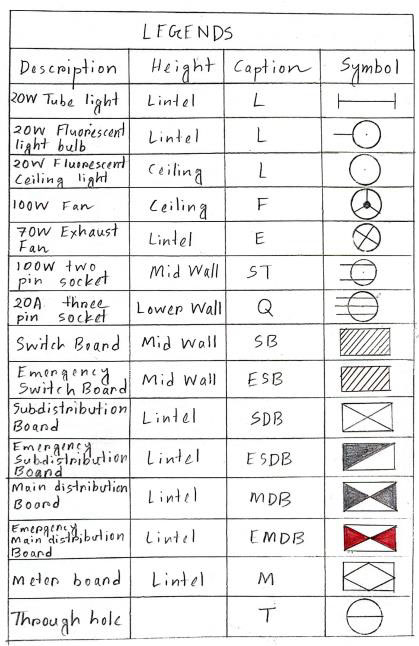 LEGENDS
Description Height Caption Symbol
20W Tube light Lintel L
20W Fluorescent
light bulb Lintel L
20W Fluorescent
Ceiling light Ceiling L
100W Fan Ceiling F
70W Exhaust
Fan Lintel E
100W two
pin socket Mid Wall ST
20A three
pin socket Lower Wall Q
Switch Board Mid Wall SB
Emergency
Switch Board Mid Wall ESB
Subdistribution
Board Lintel SDB
Emergency
Subdistribution
Board Lintel ESDB
Main distribution
Board Lintel MDB
Emergency
Main distribution
Board Lintel EMDB
Meter board Lintel M
Through hole T